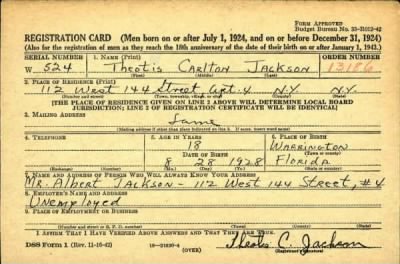 Form Approved
Budget Bureau No. 33-R012-42
REGISTRATION CARD (Men born on or after July 1, 1924, and on or before December 31, 1924)
(Also for the registration of men as they reach the 18th anniversary of the date of their birth on or after January 1, 1943.)
SERIAL NUMBER 1. NAME (Print) ORDER NUMBER
W 524 Theotis Carlton Jackson 13186
(First) (Middle) (Last)
2. PLACE OF RESIDENCE (Print)
112 West 144 Street Apt. 4 N.Y. N.Y.
(Number and street) (Town, township, village, or city) (County) (State)
[THE PLACE OF RESIDENCE GIVEN ON LINE 2 ABOVE WILL DETERMINE LOCAL BOARD
JURISDICTION; LINE 2 OF REGISTRATION CERTIFICATE WILL BE IDENTICAL]
3. MAILING ADDRESS
Same
[Mailing address if other than place indicated on line 2. If same, insert word same]
4. TELEPHONE 5. AGE IN YEARS 6. PLACE OF BIRTH
18 WARRINGTON
DATE OF BIRTH (Town or county)
8 28 1928 Florida
(Exchange) (Number) (Mo.) (Day) (Yr.) (State or country)
7. NAME AND ADDRESS OF PERSON WHO WILL ALWAYS KNOW YOUR ADDRESS
Mr. Albert JACKSON - 112 West 144 Street, #4
8. EMPLOYER'S NAME AND ADDRESS
Unemployed
9. PLACE OF EMPLOYMENT OR BUSINESS
(Number and street or R. F. D. number) (Town) (County) (State)
I AFFIRM THAT I HAVE VERIFIED ABOVE ANSWERS AND THAT THEY ARE TRUE.
DSS Form 1 (Rev. 11-16-42) (OVER) Theotis C. Jackson
(Registrant's signature)